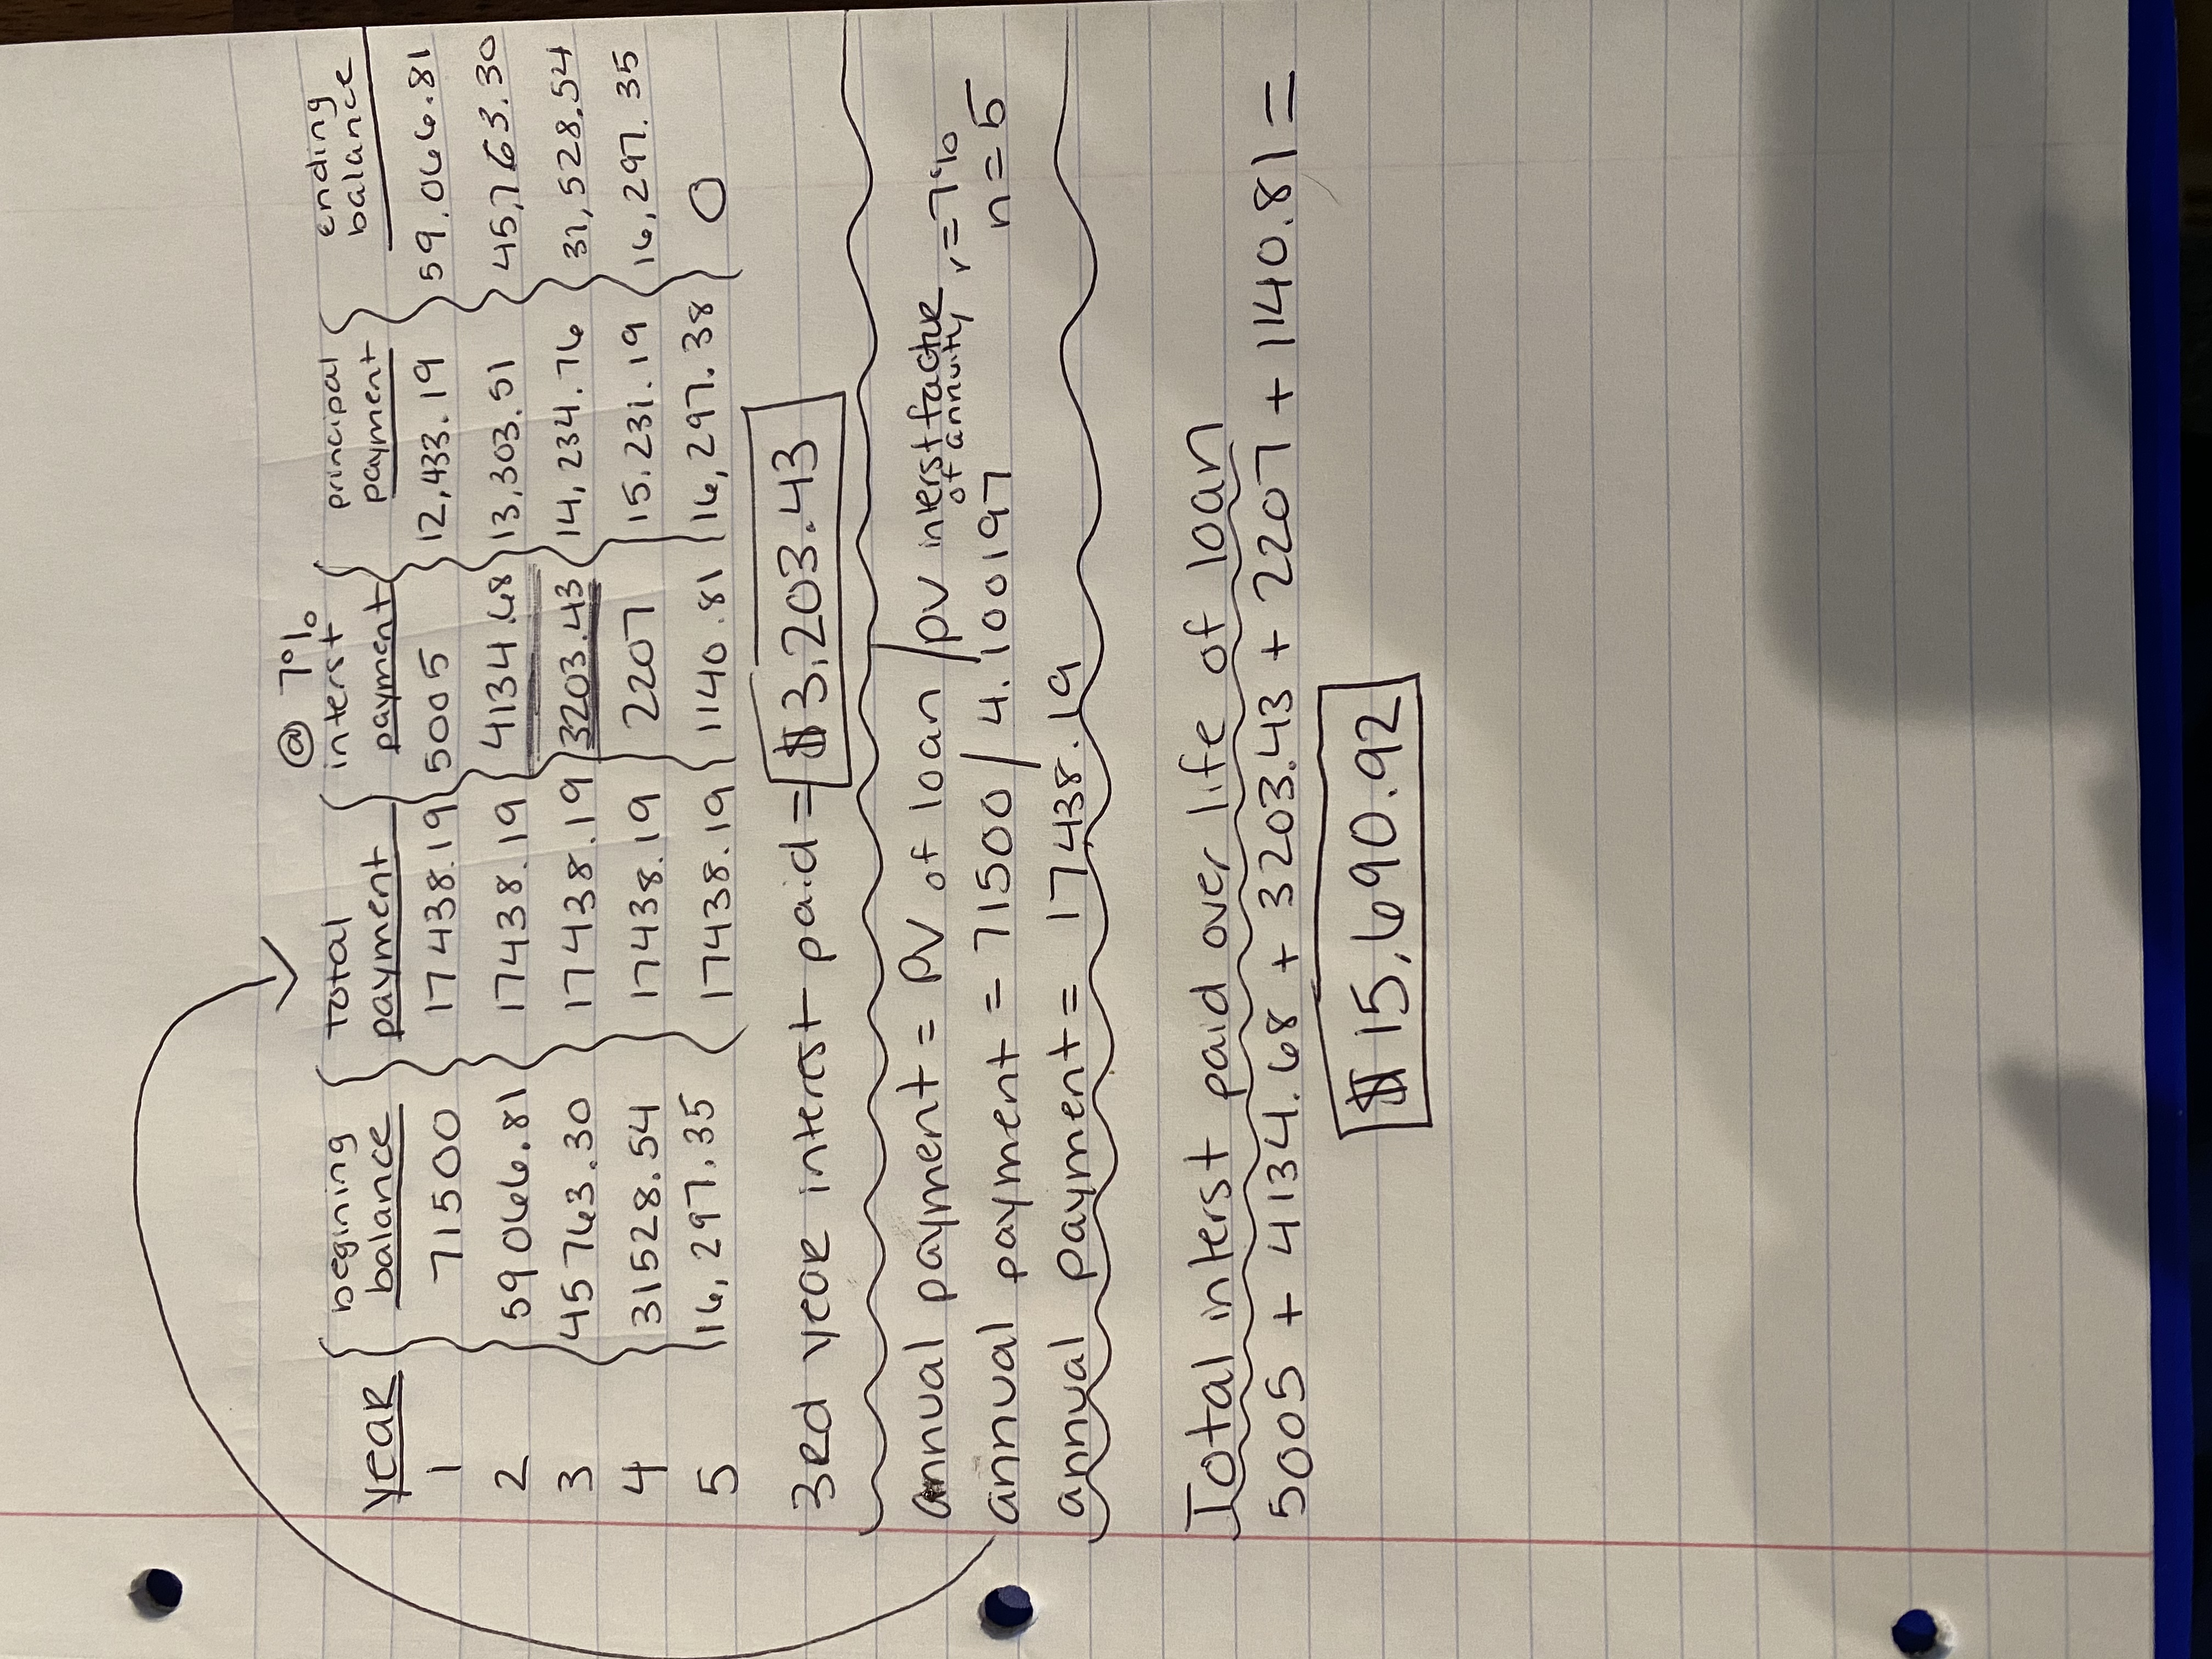 @ 7%
Year begining balance Total payment interst payment principal payment ending balance
1 71500 17438.19 5005 12,433.19 59.066.81
2 59066.81 17438.19 4134.68 13,303.51 45,763.30
3 45763.30 17438.19 3203.43 14,234.76 31,528.54
4 31528.54 17438.19 2207 15.231.19 16,297.35
5 16,297.35 17438.19 1140.81 16,297.38 0
3rd year interest paid = $3,203.43
annual payment = PV of loan / PV interst factor of annuity r=7%
annual payment = 71500 / 4.100197 n=5
annual payment = 17438.19
Total interst paid over life of loan
5005 + 4134.68 + 3203.43 + 2207 + 1140.81 =
$15,690.92